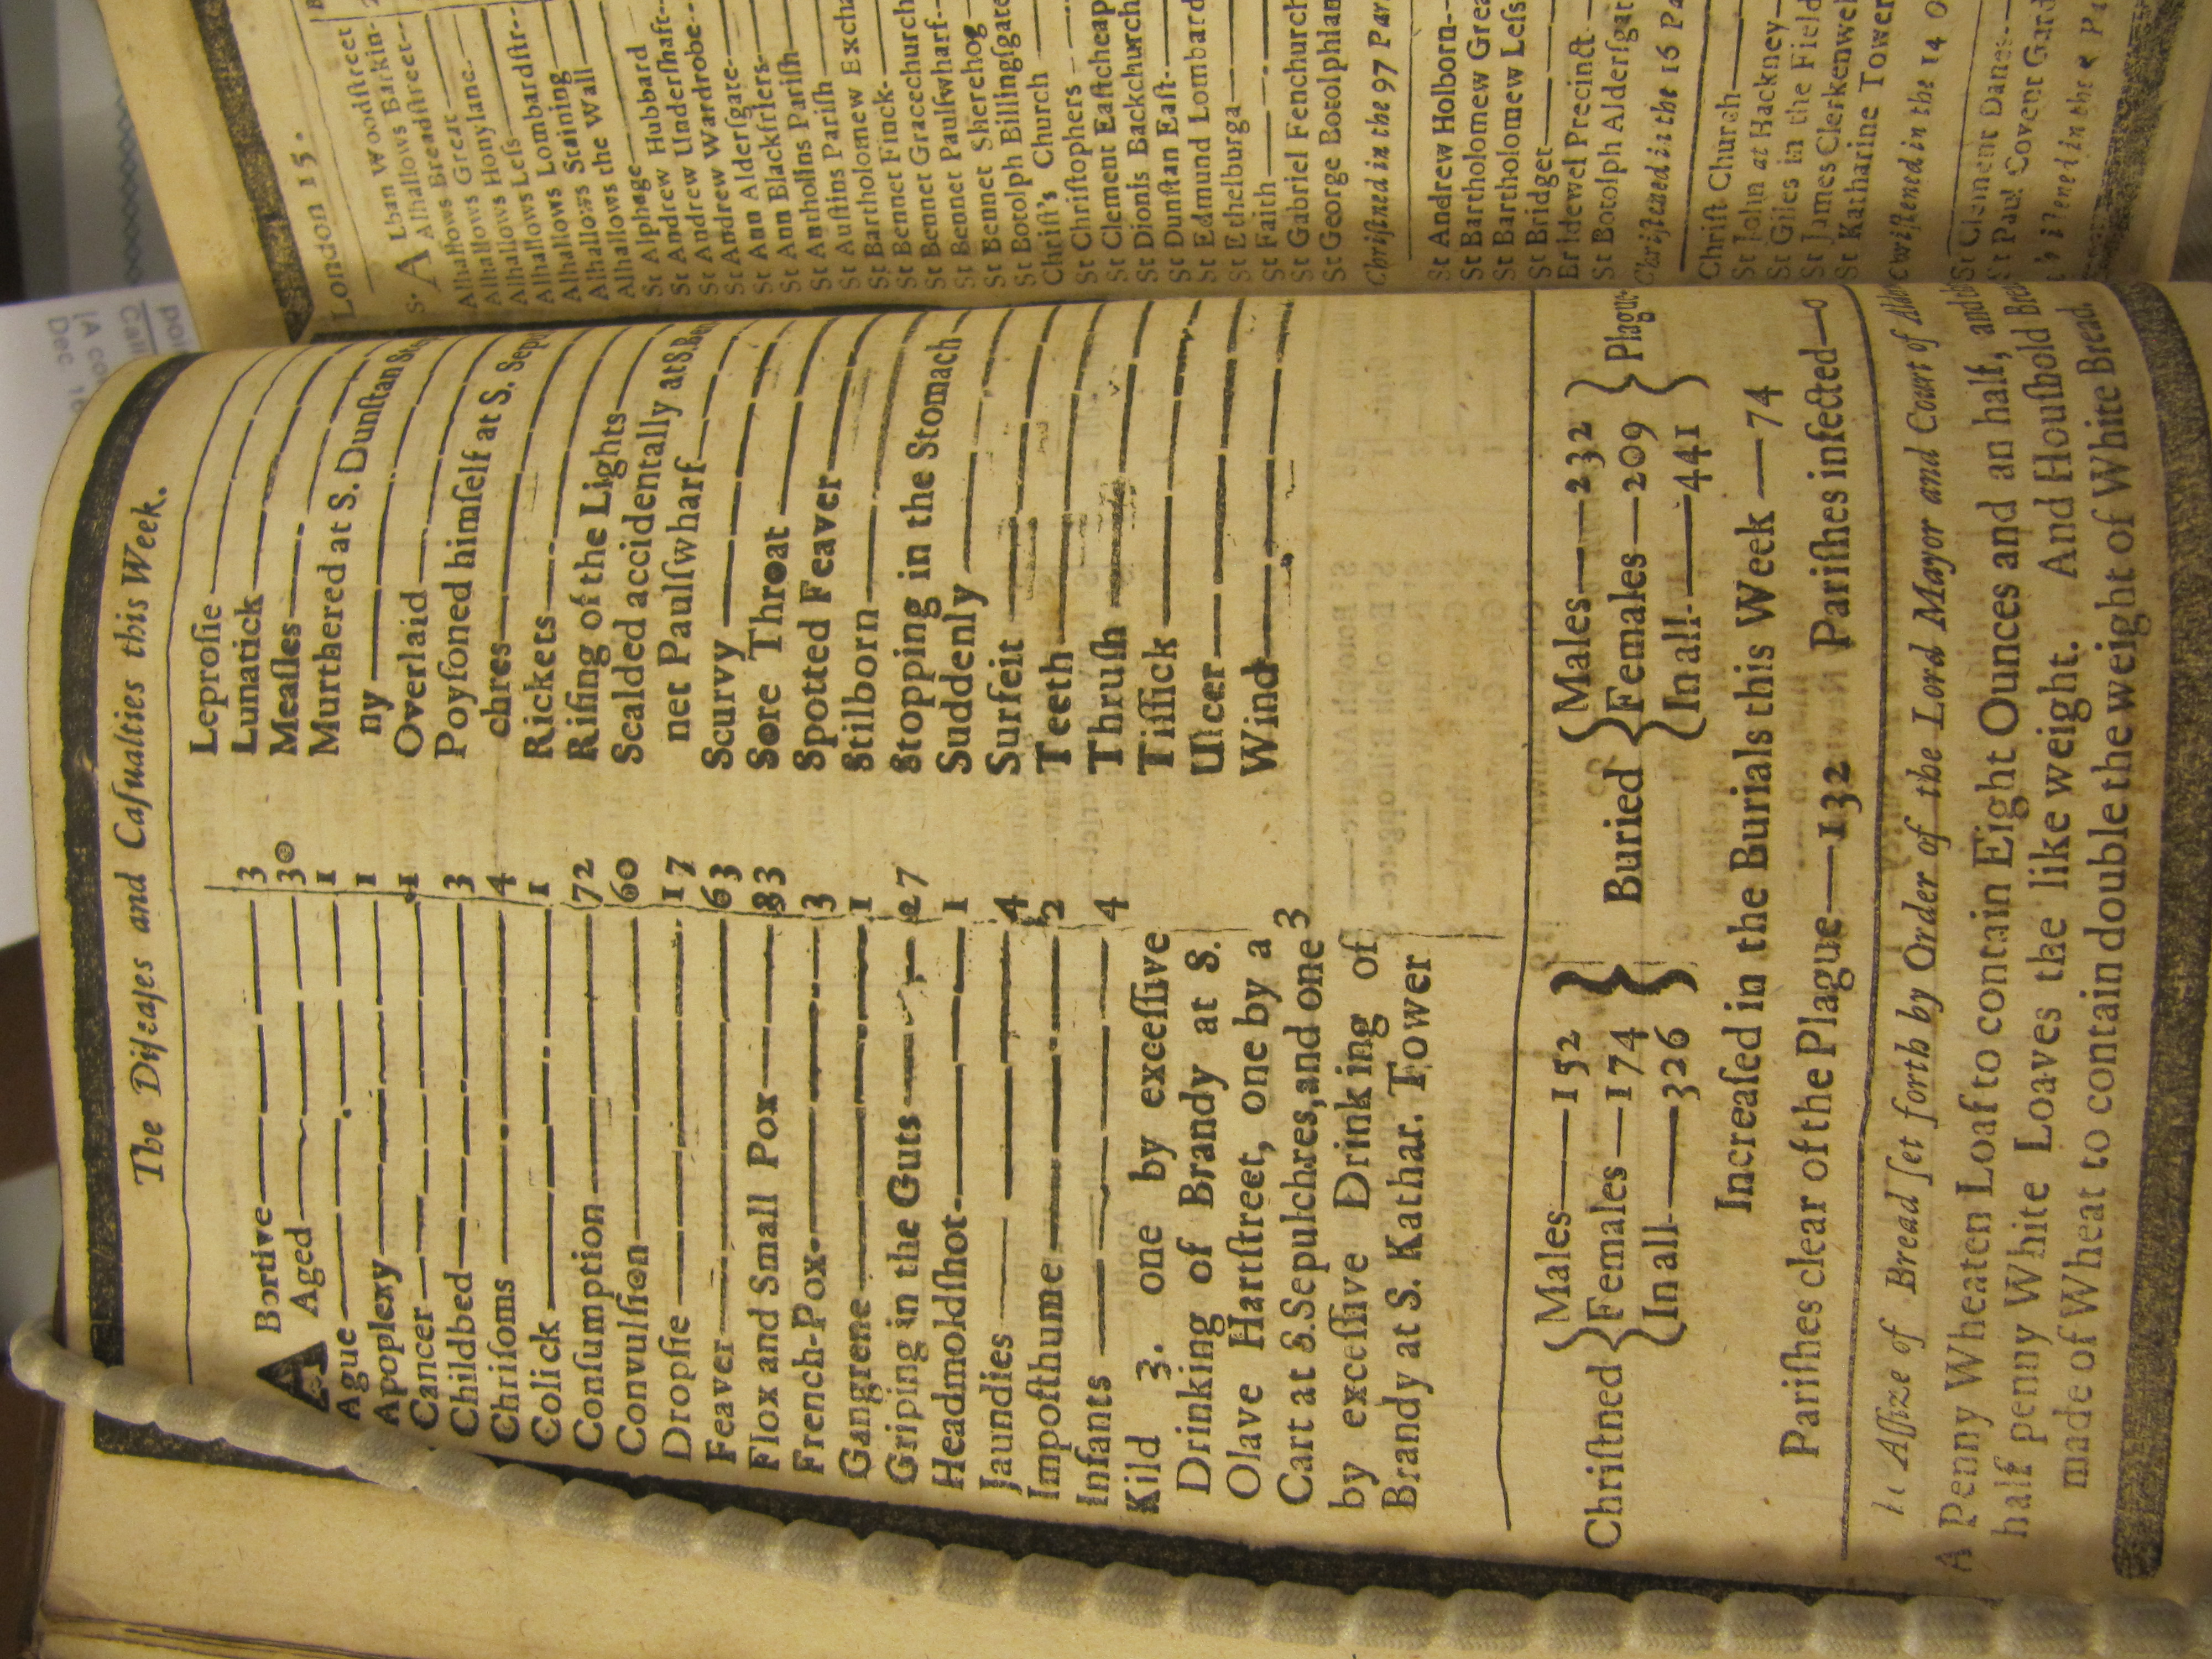 The Diſeaſes and Caſualties this Week.
ABortive 3
Aged 30
Ague 1
Apoplexy 1
Cancer 1
Childbed 3
Chriſoms 4
Colick 1
Conſumption 72
Convulſion 60
Dropſie 17
Feaver 63
Flox and Small Pox 33
French-Pox 3
Gangrene 1
Griping in the Guts 27
Headmoldſhot 1
Jaundies 4
Impoſthume 2
Infants 4
Kild 3. one by exceſſive
Drinking of Brandy at S.
Olave Hartſtreet, one by a
Cart at S. Sepulchres, and one 3
by exceſſive Drinking of
Brandy at S. Kathar. Tower
Leproſie
Lunatick
Meaſles
Murthered at S. Dunſtan
ny
Overlaid
Poyſoned himſelf at S. Sepu
chres
Rickets
Riſing of the Lights
Scalded accidentally at S. Ben
net Paulſwharf
Scurvy
Sore Throat
Spotted Feaver
Stilborn
Stopping in the Stomach
Suddenly
Surfeit
Teeth
Thruſh
Tiſſick
Ulcer
Wind
Chriſtned { Males—152 Females—174 In all—326 }
Buried { Males—232 Females—209 In all—441 } Plague
Increaſed in the Burials this Week—74
Pariſhes clear of the Plague—132 Pariſhes infected—0
Aſſize of Bread ſet forth by Order of the Lord Mayor and Court of
A Penny Wheaten Loaf to contain Eight Ounces and an half, and
half penny White Loaves the like weight. And Houſhold
made of Wheat to contain double the weight of White Bread.
London 15.
S. ALban Woodſtreet
Alhallows Barkin
Alhallows Breadſtreet
Alhallows Great
Alhallows Honylane
Alhallows Leſs
Alhallows Lombardſtr
Alhallows Staining
Alhallows the Wall
St Alphage
St Andrew Hubbard
St Andrew Underſhaft
St Andrew Wardrobe
St Ann Alderſgate
St Ann Blackfriers
St Antholins Pariſh
St Auſtins Pariſh
St Bartholomew Excha
St Bennet Finck
St Bennet Gracechurch
St Bennet Paulſwharf
St Bennet Sherehog
St Botolph Billingſgate
Chriſt's Church
St Chriſtophers
St Clement Eaſtcheap
St Dionis Backchurch
St Dunſtan Eaſt
St Edmund Lombard
St Ethelburga
St Faith
St Gabriel Fenchurch
St George Botolphlan
Chriſtned in the 97 Par
St Andrew Holborn
St Bartholomew Grea
St Bartholomew Leſs
St Bridget
Bridewel Precinct
St Botolph Alderſgat
Chriſtned in the 16 Pa
Chriſt Church
St John at Hackney
St Giles in the Field
St James Clerkenwel
St Katharine Tower
in the 14 O
St Clement Danes
St Paul Covent Gard
in the